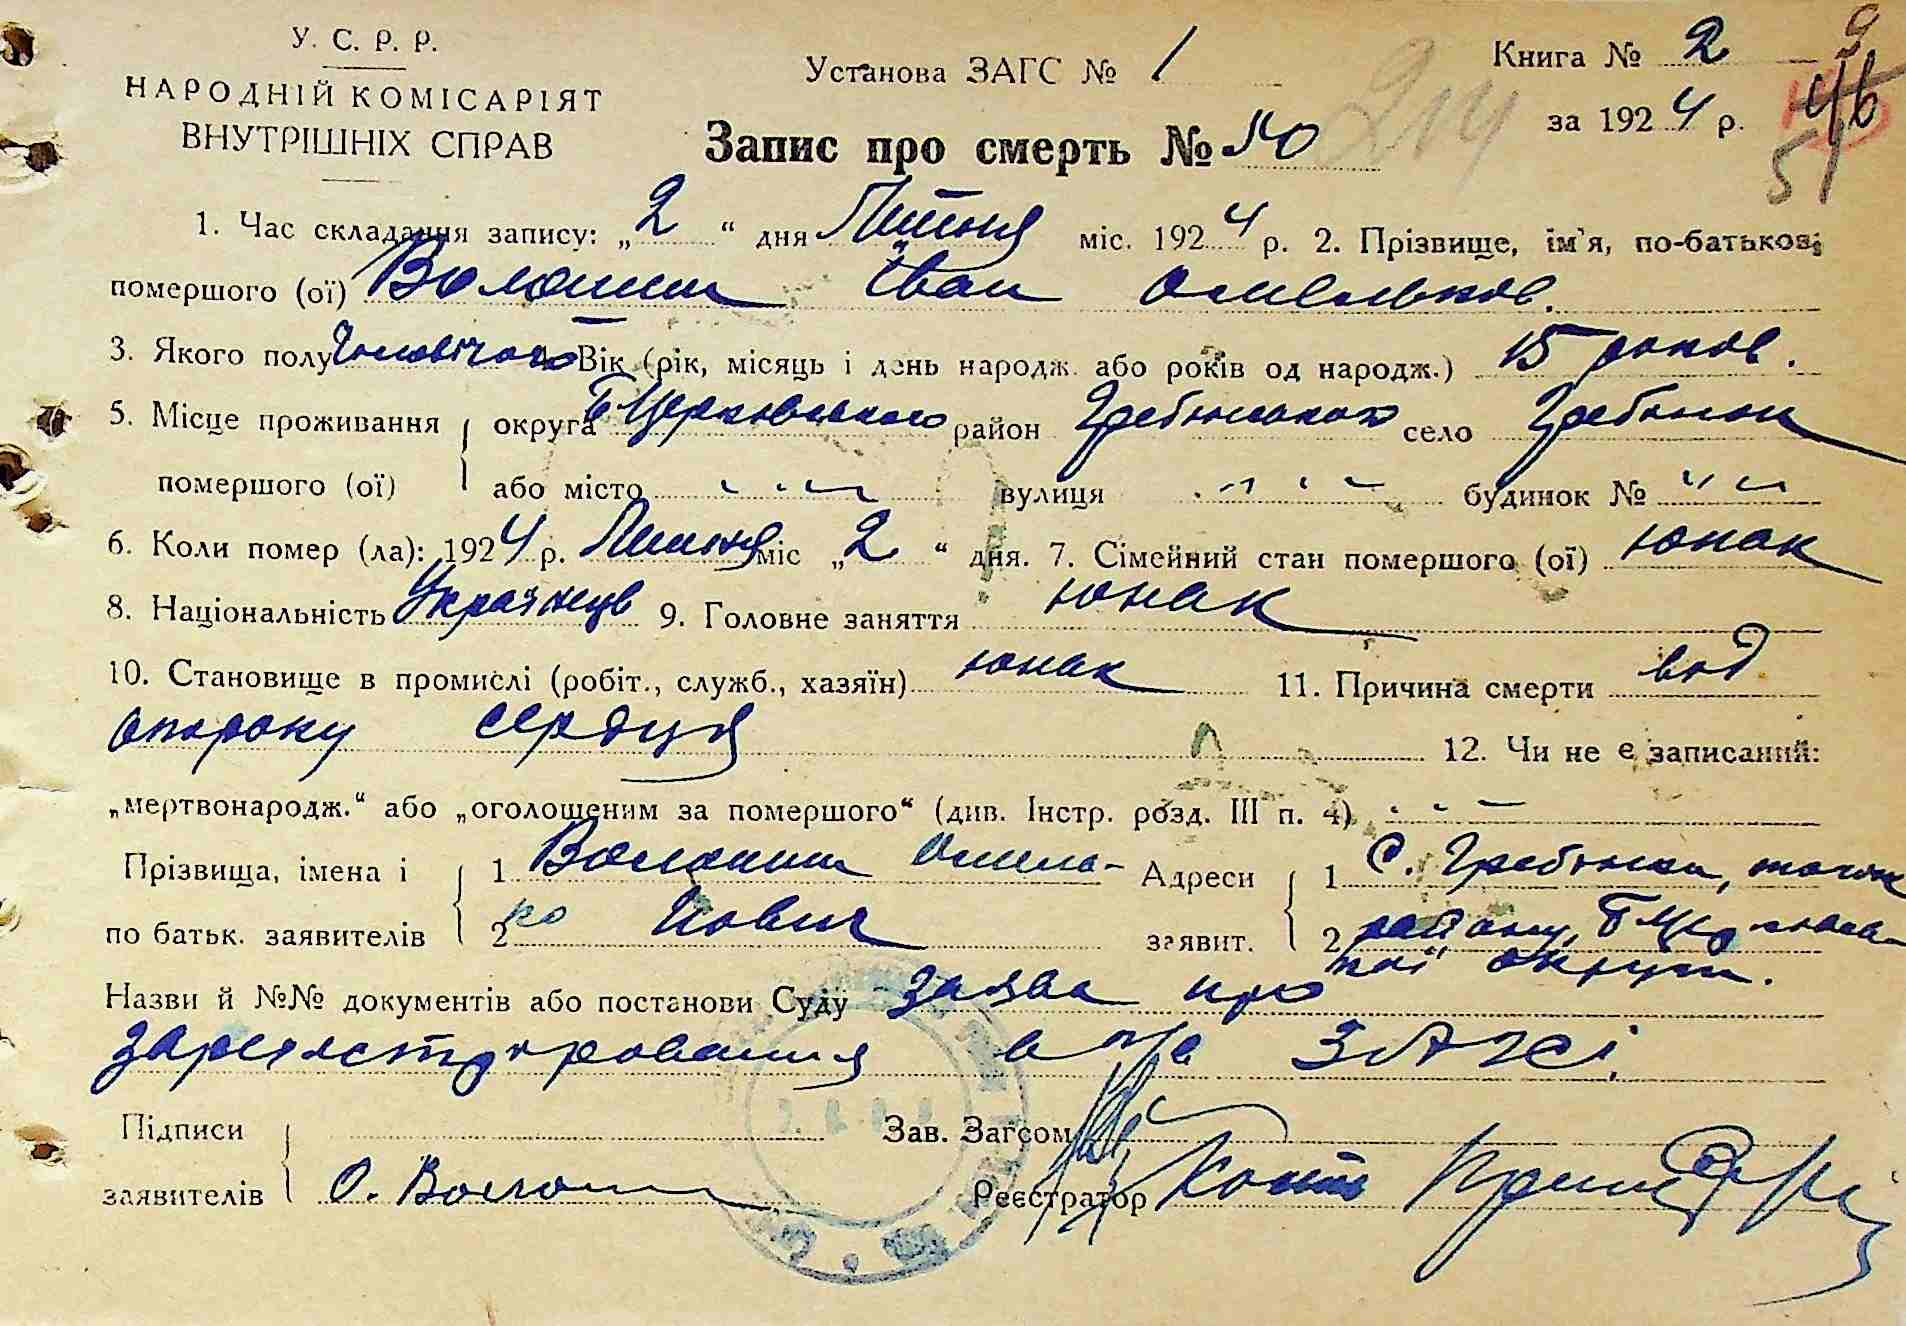 У. С. Р. Р.
НАРОДНІЙ КОМІСАРІЯТ
ВНУТРІШНІХ СПРАВ
Установа ЗАГС № 1
Книга № 2
за 1924 р. 46
51
Запис про смерть № 50 214
1. Час складання запису: „2“ дня Липня міс. 1924 р. 2. Прізвище, ім'я, по-батькові
помершого (ої) Волошин Іван Омельков.
3. Якого полу Чоловічого Вік (рік, місяць і день народж. або років од народж.) 15 роков.
5. Місце проживання округа БЦерковського район Гребінського село Гребінки
помершого (ої) або місто вулиця будинок №
6. Коли помер (ла): 1924 р. Липня міс „2“ дня. 7. Сімейний стан помершого (ої) юнак
8. Національність Українець 9. Головне заняття юнак
10. Становище в промислі (робіт., служб., хазяїн) юнак 11. Причина смерти від
опороку сердця 12. Чи не є записаний:
„мертвонародж.“ або „оголошеним за помершого“ (див. Інстр. розд. III п. 4)
Прізвища, імена і 1 Волошин Омель- Адреси 1 С. Гребінки, того ж
по батьк. заявителів 2 ко заявит. 2 району, БЦерковсь-
кої округи.
Назви й №№ документів або постанови Суду Заява про
зареєстрировання в ЗАГСі.
Підписи Зав. Загсом
заявителів О. Волошин Реєстратор